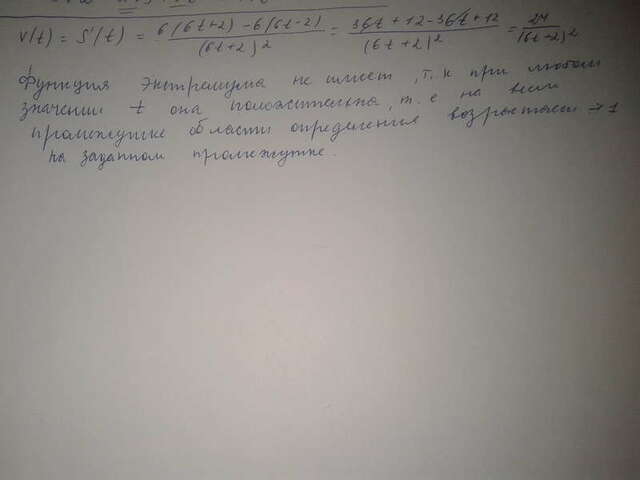 V(t) = S'(t) = 6(6t+2) - 6(6t-2) / (6t+2)² = 36t + 12 - 36t + 12 / (6t+2)² = 24 / (6t+2)²
Функция экстремума не имеет, т.к при любом
значении t она положительна, т.е на всем
промежутке области определения возрастает →
на заданном промежутке.